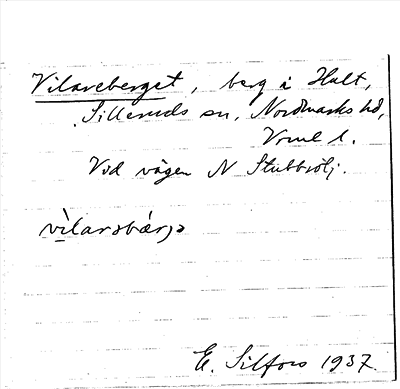 Vilareberget, berg i Hult,
Silleruds sn, Nordmarks hd,
Vrml l.
Vid vägen N Stubbsölj.
vìlarəbær̨ə
E. Silfors 1937.